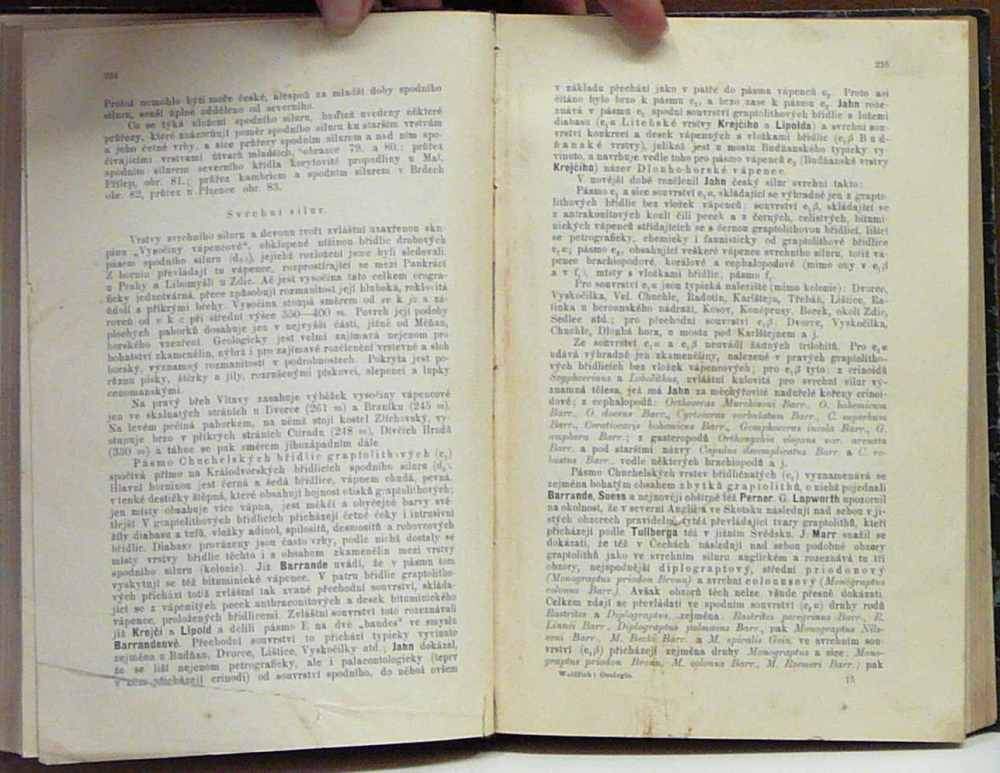 224
Protož nemohlo býti moře české, alespoň za mladší doby spodního
siluru, souší úplně odděleno od severního.
Co se týká složení spodního siluru, buďtež uvedeny některé
průřezy, které znázorňují poměr spodního siluru ku starším vrstvám
a jeho četné vrhy, a sice průřezy spodním silurem a nad ním spo-
čívajícími vrstvami útvarů mladších, obrazce 79. a 80.; průřez
spodním silurem severního křídla korytovité propadliny u Mal.
Přílep, obr. 81.; průřez kambriem a spodním silurem v Brdech
obr. 82, průřez u Plzence obr. 83.
Svrchní silur.
Vrstvy svrchního siluru a devonu tvoří zvláštní uzavřenou sku-
pinu „Vysočiny vápencové“, obklopené nížinou břidlic drobových
pásem spodního siluru (d₅), jejichž rozložení jsme byli sledovali.
Z hornin převládají tu vápence, rozprostírající se mezi Pankrácí
u Prahy a Libomyšlí u Zdic. Ač jest vysočina tato celkem orogra-
ficky jednotvárná, přece způsobují rozmanitost její hluboká, roklovitá
údolí s příkrými břehy. Vysočina stoupá směrem od sv. k jz. a zá-
roveň od v. k z. při střední výšce 350—400 m. Povrch její podoby
plochých pahorků dosahuje jen v nejvyšší části, jižně od Měňan,
horského vzezření. Geologicky jest velmi zajímavá nejenom pro
bohatství zkamenělin, nýbrž i pro zajímavé rozčlenění vrstevné a sloh
horský, význačný rozmanitostí v podrobnostech. Pokryta jest po-
různu písky, štěrky a jíly, rozrušenými pískovci, slepenci a lupky
cenomanskými.
Na pravý břeh Vltavy zasahuje výběžek vysočiny vápencové
jen ve skalnatých stráních u Dvorce (261 m) a Braníku (245 m).
Na levém počíná pahorkem, na němž stojí kostel Zlíchovský, vy-
stupuje brzo v příkrých stráních Cůradu (248 m), Dívčích Hradů
(330 m) a táhne se pak směrem jihozápadním dále.
Pásmo Chuchelských břidlic graptolithových (e₁)
spočívá přímo na Králodvorských břidlicích spodního siluru (d₅).
Hlavní horninou jest černá a šedá břidlice, vápnem chudá, pevná,
v tenké destičky štěpná, které obsahují hojnost otisků graptolithových;
jen místy obsahuje více vápna, jest měkčí a obyčejně barvy svě-
tlejší. V graptolithových břidlicích přicházejí četně čoky i intrusivní
žíly diabasu a tufů, vložky adinol, spilositů, desmositů a rohovcových
břidlic. Diabasy provázeny jsou často vrhy, podle nichž dostaly se
místy vrstvy břidlic těchto i s obsahem zkamenělin mezi vrstvy
spodního siluru (kolonie). Již Barrande uvádí, že v pásmu tom
vyskytují se též bituminické vápence. V patru břidlic graptolitho-
vých přichází totiž zvláštní tak zvané přechodní souvrství, skláda-
jící se z vápenitých pecek anthraconitových a desek bitumitického
vápence, proložených břidlicemi. Zvláštní souvrství toto rozeznávali
již Krejčí a Lipold a dělili pásmo E na dvě „bandes“ ve smyslu
Barrandeově. Přechodní souvrství to přichází typicky vyvinuto
zejména u Budňan, Dvorce, Lištice, Vyskočilky atd.; Jahn dokázal,
že se liší nejenom petrograficky, ale i palaeontologicky (teprv
v něm přicházejí crinoidi) od souvrství spodního, do něhož ovšem
225
v základu přechází jako v patře do pásma vápenců e₂. Proto asi
čítáno bylo brzo k pásmu e₁, a brzo zase k pásmu e₂. Jahn roze-
znává v pásmu e₁ spodní souvrství graptolithových břidlic s ložemi
diabasu (e₁α Litohlavské vrstvy Krejčího a Lipolda) a svrchní sou-
vrství konkrecí a desek vápenných s vložkami břidlic (e₁β Bud-
ňanské vrstvy), jelikož jest u mostu Budňanského typicky vy-
vinuto, a navrhuje vedle toho pro pásmo vápenců e₂ (Budňanské vrstvy
Krejčího) název Dlouhohorské vápence.
V novější době rozčlenil Jahn český silur svrchní takto:
Pásmo e₁ a sice souvrství e₁α, skládající se výhradně jen z grapto-
lithových břidlic bez vložek vápenců; souvrství e₁β, skládající se
z antrakonitových koulí čili pecek a z černých, celistvých, bitumi-
nických vápenců střídajících se s černou graptolithovou břidlicí, lišící
se petrograficky, chemicky i faunisticky od graptolithové břidlice
e₁α; pásmo e₂, obsahující veškeré vápence svrchního siluru, totiž vá-
pence brachiopodové, korálové a cephalopodové (mimo ony v e₁β
a v f₁), místy s vložkami břidlic; pásmo f₁.
Pro souvrství e₁α jsou typická naleziště (mimo kolonie): Dvorce,
Vyskočilka, Vel. Chuchle, Radotín, Karlštejn, Třebáň, Lištice, Ra-
tinka u berounského nádraží, Kosov, Koněprusy, Borek, okolí Zdic,
Sedlec atd.; pro přechodní souvrství e₁β: Dvorce, Vyskočilka,
Chuchle, Dlouhá hora, u mostu pod Karlštejnem a j.
Ze souvrství e₁α a e₁β neuvádí žádných trilobitů. Pro e₁α
udává výhradně jen zkameněliny, nalezené v pravých graptolitho-
vých břidlicích bez vložek vápencových; pro e₁β tyto: z crinoidů
Scyphocrinus a Lobolithus, zvláštní kulovitá pro svrchní silur vý-
znamná tělesa, jež má Jahn za měchýřovitě naduřelé kořeny crinoi-
dové; z cephalopodů: Orthoceras Murchisoni Barr., O. bohemicum
Barr., O. docens Barr., Cyrtoceras corbulatum Barr., C. superbum
Barr., Ceratiocaris bohemicus Barr., Gomphoceras incola Barr., G.
amphora Barr.; z gasteropodů Orthonychia elegans var. arcuata
Barr. a pod staršími názvy Capulus disomplicatus Barr. a C. ro-
bustus Barr., vedle některých brachiopodů a j.
Pásmo Chuchelských vrstev břidličnatých (e₁) vyznamenává se
zejména bohatým obsahem zbytků graptolithů, o nichž pojednali
Barrande, Suess a nejnověji obšírně též Perner. G. Lapworth upozornil
na okolnost, že v severní Anglii a ve Skotsku následují nad sebou v ji-
stých obzorech pravidelně tytéž převládající tvary graptolithů, kteří
přicházejí podle Tullberga též v jižním Švédsku. J. Marr snažil se
dokázati, že též v Čechách následují nad sebou podobné obzory
graptolithů jako ve svrchním siluru anglickém a rozeznává tu tři
obzory, nejspodnější diplograptový, střední priodnový
(Monograptus priodon Bronn) a svrchní colonusový (Monograptus
colonus Barr.). Avšak obzorů těch nelze všude přesně dokázati.
Celkem zdají se převládati ve spodním souvrství (e₁α) druhy rodů
Rastrites a Diplograptus, zejména: Rastrites peregrinus Barr., R.
Linnéi Barr., Diplograptus palmeus Barr., pak Monograptus Nils-
soni Barr., M. Becki Barr. a M. spiralis Gein. ve svrchním sou-
vrství (e₁β) přicházejí zejména druhy Monograptus a sice: Mono-
graptus priodon Bronn, M. colonus Barr., M. Roemeri Barr.; pak
Woldřich: Geologie.
15